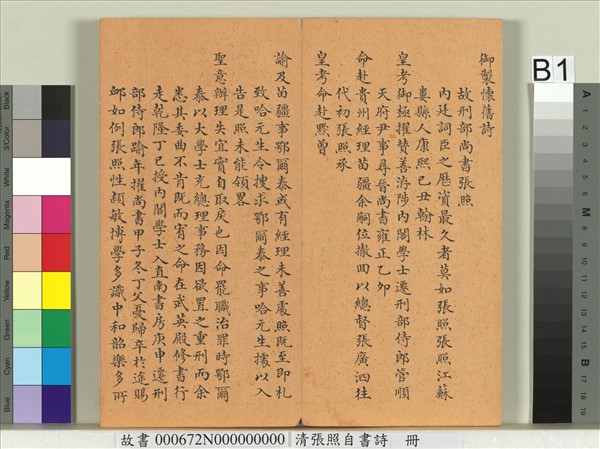 御製懷舊詩
故刑部尚書張照
內廷詞臣之歷資最久者莫如張照張照江蘇
婁縣人康熙己丑翰林
皇考御極擢贊善洊陟內閣學士遷刑部侍郎管順
天府尹事尋晉尚書雍正乙卯
命赴貴州經理苗疆余嗣位撤回以總督張廣泗往
代初張照承
皇考命赴黔曾
諭及苗疆事鄂爾泰或有經理未善處照既至即札
致哈元生令搜求鄂爾泰之事哈元生據以入
告是照未能領畧
聖意辦理失宜實自取戾也因命罷職治罪時鄂爾
泰以大學士充總理事務因欲置之重刑而余
悉其委曲不肯既而宥之命在武英殿修書行
走乾隆丁巳授內閣學士入直南書房庚申遷刑
部侍郎踰年擢尚書甲子冬丁父憂歸卒於途賜
卹如例張照性穎敏博學多識中和韶樂多所
B1
Black
3/Color
White
Magenta
Red
Yellow
Green
Cyan
Blue
A
1
2
3
4
5
6
M
8
9
10
11
12
13
14
15
B
17
18
19
故書 000672N000000000 清張照自書詩 冊